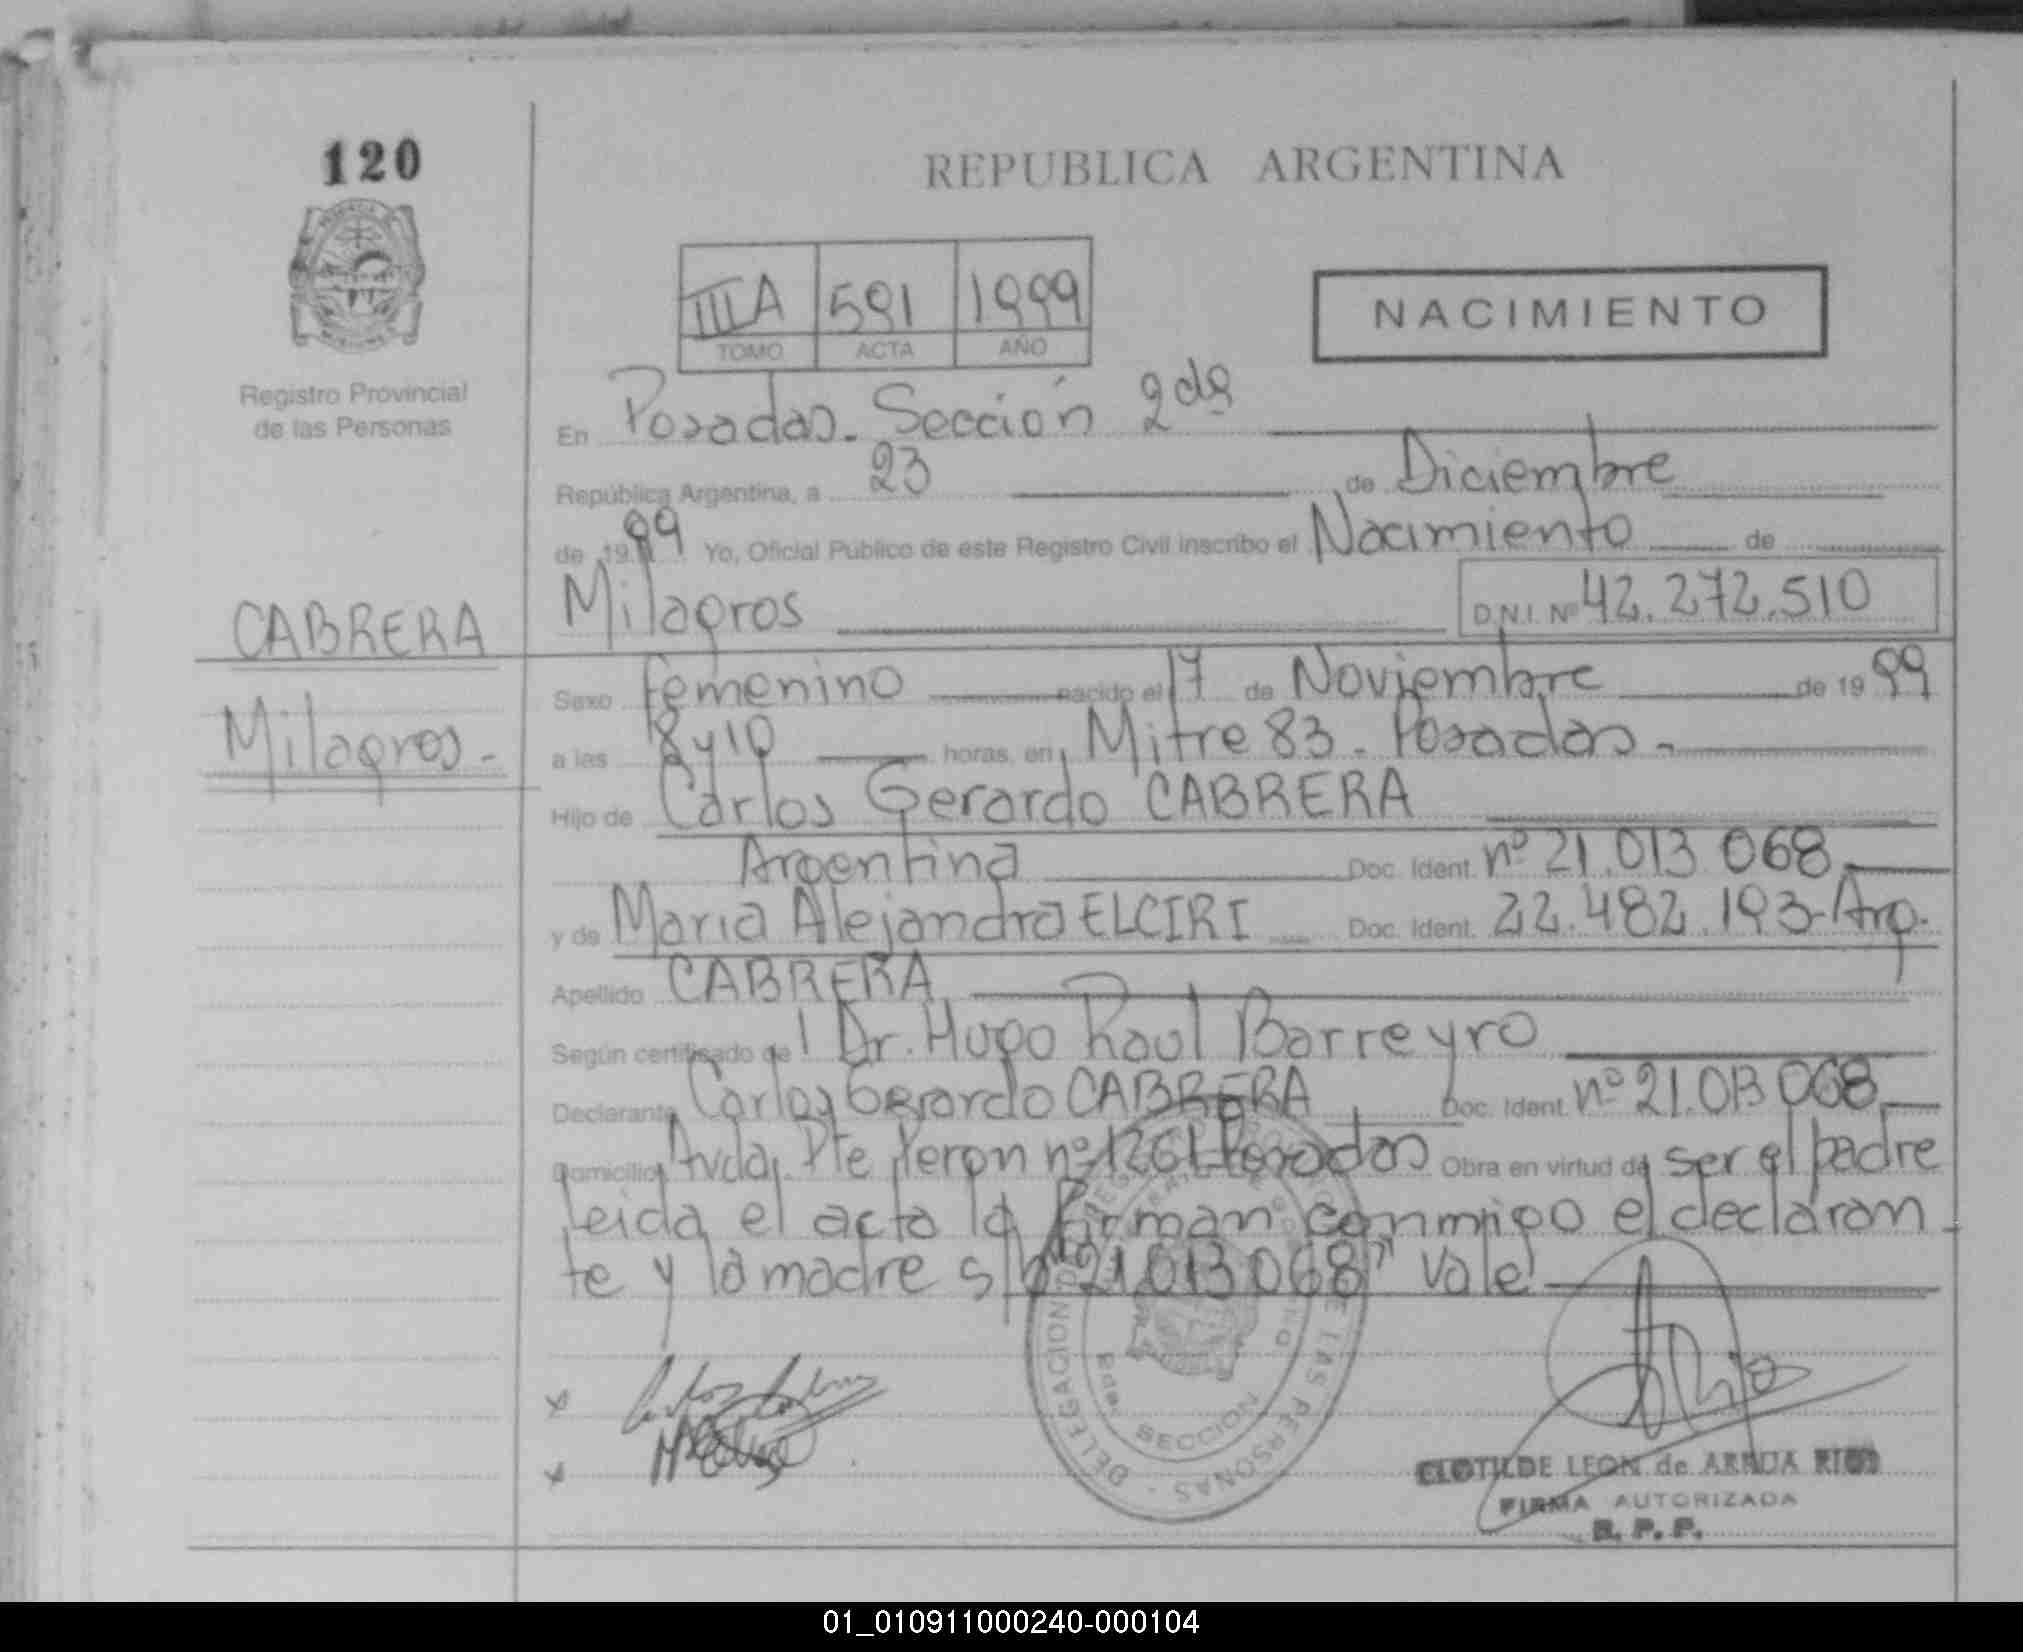 120
REPUBLICA ARGENTINA
IIIA 591 1999
TOMO ACTA AÑO
NACIMIENTO
Registro Provincial
de las Personas
En Posadas. Sección 2da
República Argentina, a 23 de Diciembre
de 1999 Yo, Oficial Público de este Registro Civil inscribo el Nacimiento de
Milagros D.N.I. Nº 42.272.510
CABRERA
Milagros.-
Sexo femenino nacido el 17 de Noviembre de 1999
a las 8 y 10 horas, en Mitre 83. Posadas.-
Hijo de Carlos Gerardo CABRERA
Argentina Doc. Ident. nº 21.013.068
y de Maria Alejandra ELCIRI Doc. Ident. 22.482.193-Arg.
Apellido CABRERA
Según certificado de l Dr. Hugo Raul Barreyro
Declarante Carlos Gerardo CABRERA Doc. Ident. nº 21.013.068
Domicilio Avda. Pte Peron nº 1261 Posadas Obra en virtud de ser el padre
leida el acta la firman conmigo el declaran-
te y la madre s/b "21.013.068" Vale
DELEGACION DE LAS PERSONAS
SECCION
CLOTILDE LEON de ARRUA RIOS
FIRMA AUTORIZADA
R. P. P.
01_010911000240-000104